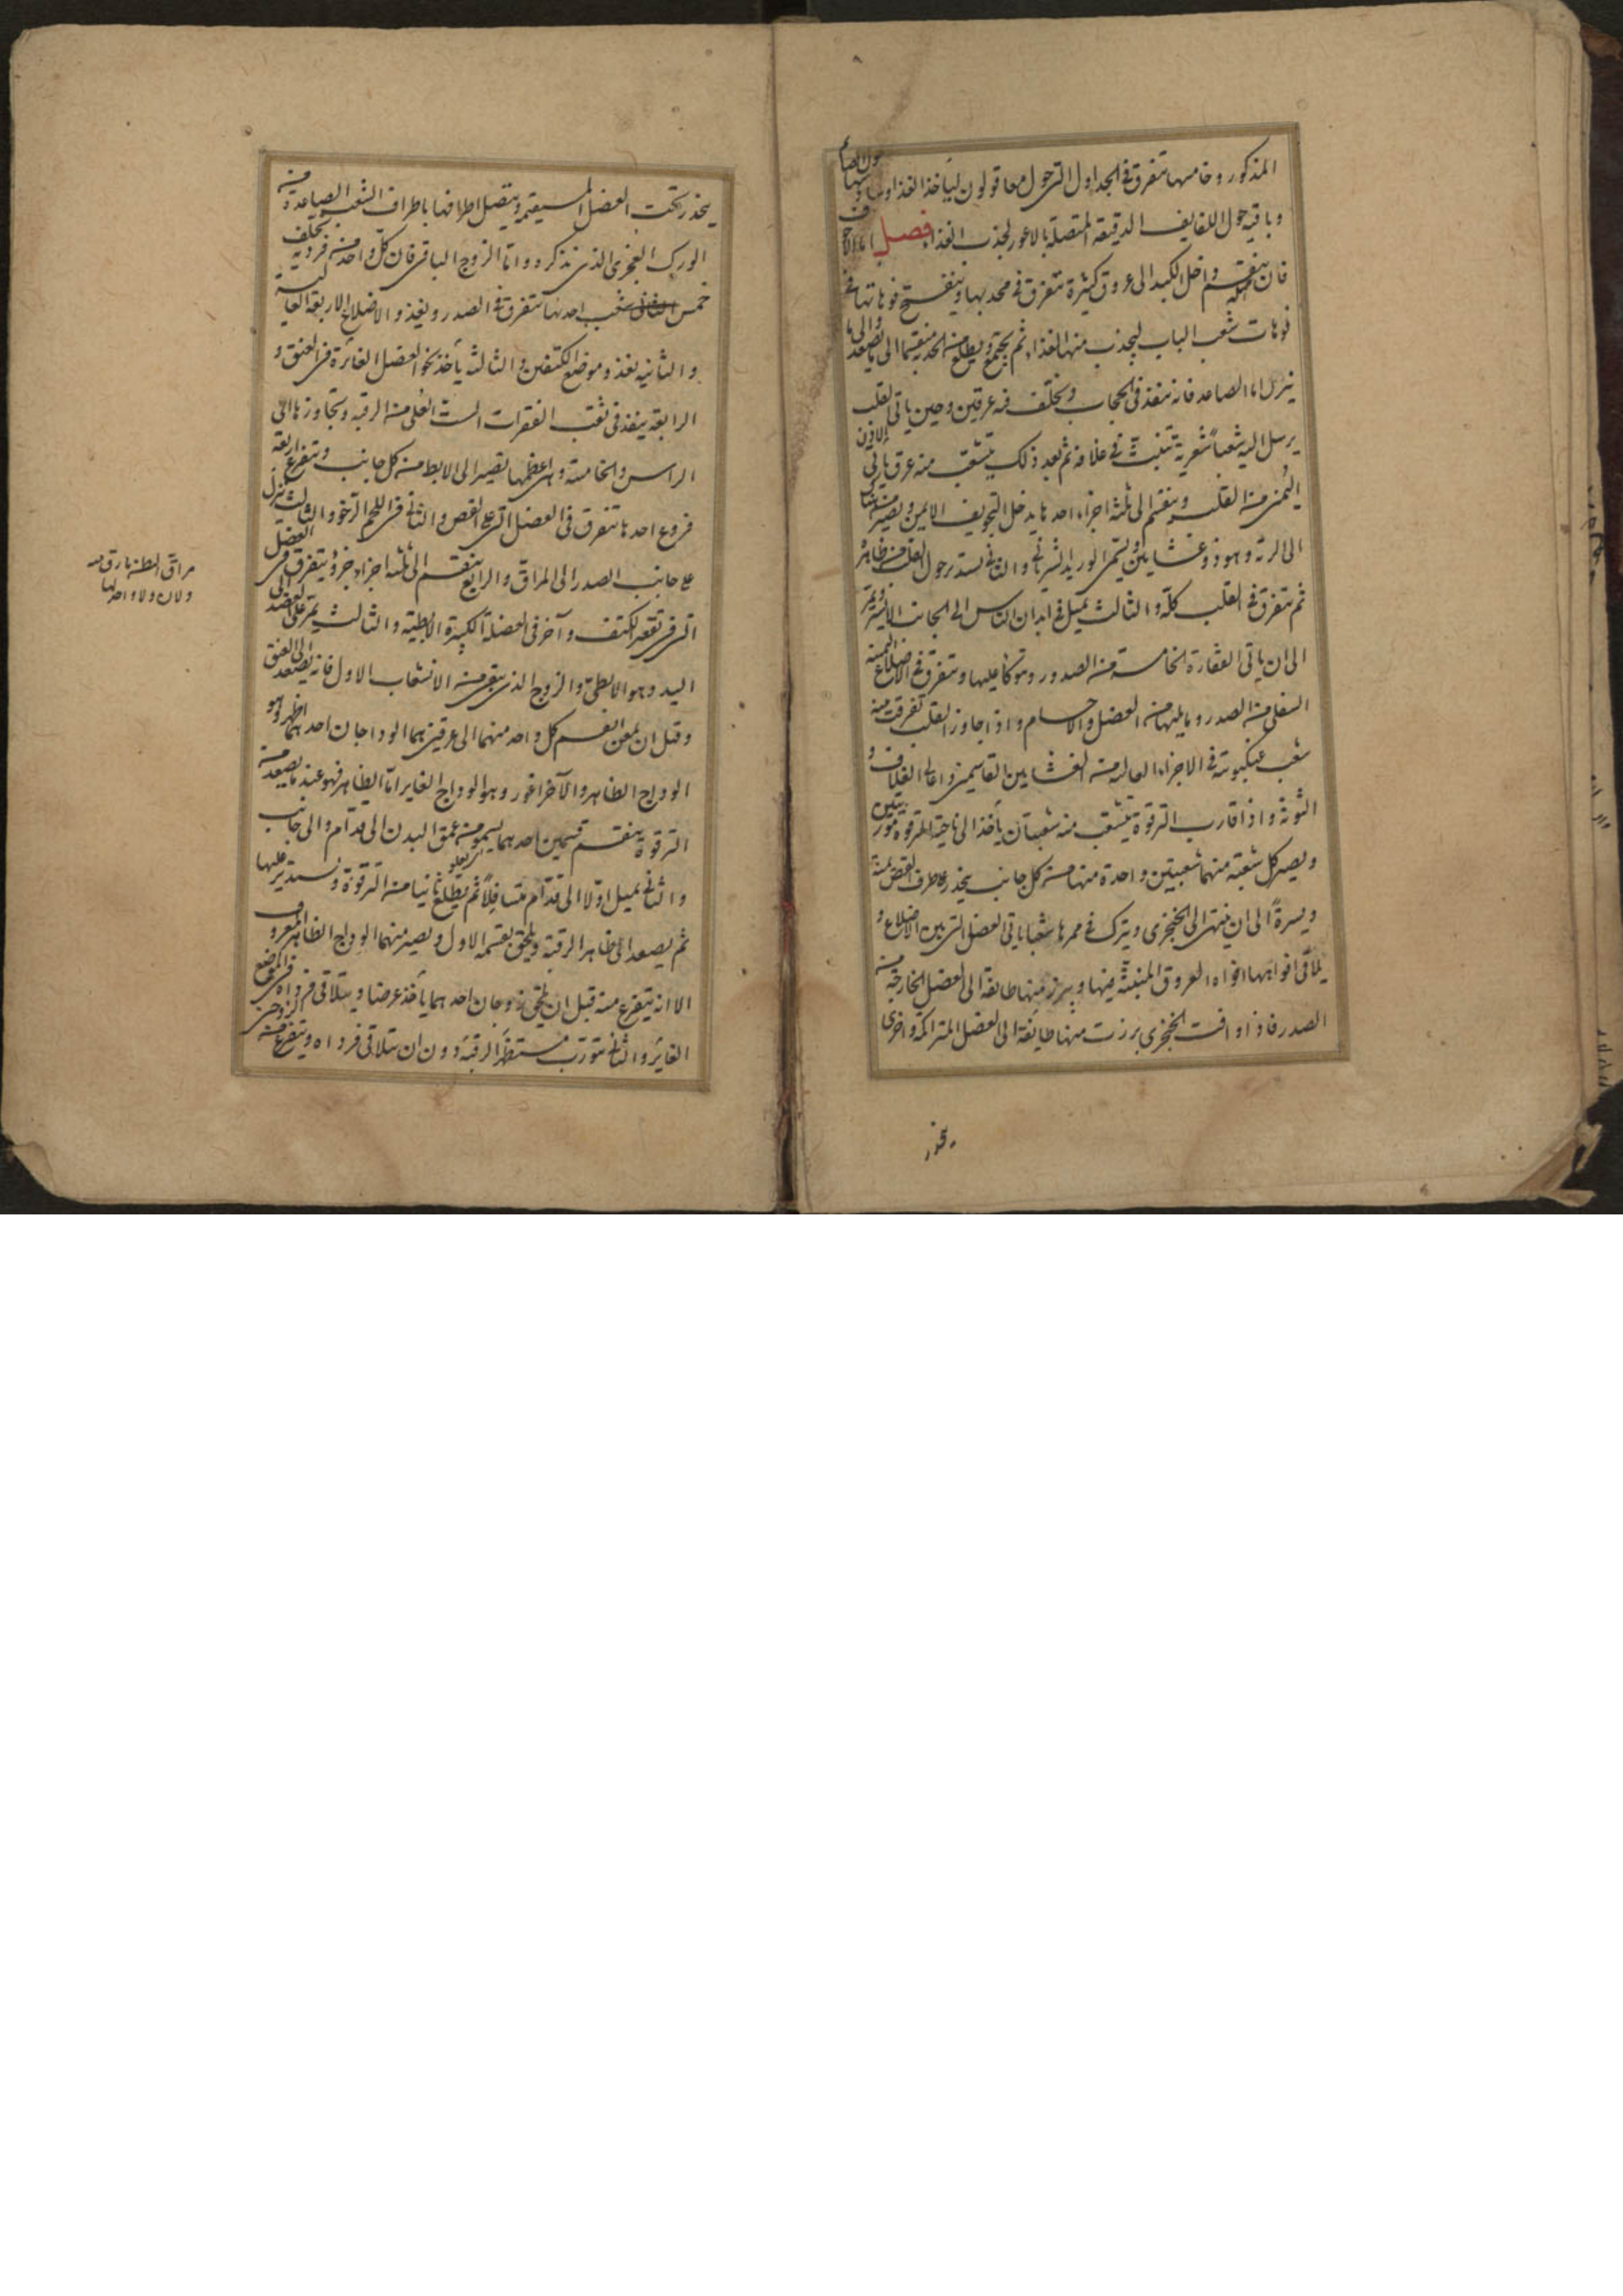 المذكور وخامسها تتفرق فى الجداول التى حول معا قولون ليأخذ الغذا وسادسها حول الصايم
وباقيه حول اللفايف الدقيقه المتصلة بالاعور لجذب الغذا فصل اما الاجوف
فان ينقسم داخل الكبد الى عروق كثيرة تتفرق فى محدبها وينفتح فوهاتها فى
فوهات شعب الباب ليجذب منها الغذاء ثم يجتمع ويطلع منه الحدبه منقسما الى ما يصعد والى ما
ينزل اما الصاعد فانه ينفذ فى الحجاب ويخلف فيه عرقين وحين ياتى القلب
يرسل اليه شعباً شعرية تنبث فى غلافه ثم بعد ذلك يتشعب منه عرق ياتى الاذن
اليمنى من القلب وينقسم الى ثلثه اجزاء احدها يدخل التجويف الايمن ويصير منه هناك
الى الرئه وهو ذو غشايين ويسمى الوريد الشريانى والثانى يستدير حول القلب من ظاهره
ثم تتفرق فى القلب كله والثالث يميل فى ابدان الناس الى الجانب الايسر ويمر
الى ان ياتى الفقارة الخامسة من الصدر ويتوكأ عليها ويتفرق فى الاضلاع الثمنيه
السفلى من الصدر وما يليها من العضل والاجسام واذا جاوز القلب تفرقت منه
شعب عنكبوتيه فى الاجزاء العاليه من الغشايين القاسمين واعالى الغلاف و
التوثه واذا قارب الترقوة يتشعب منه شعبتان يأخذا الى ناحية الترقوة موربتين
ويصير كل شعبة منهما شعبتين واحدة منها من كل جانب ينحدر على طرف القص يمنة
ويسرةً الى ان ينتهى الى الخنجرى ويترك فى ممرها شعبا ياتى العضل التى بين الاضلاع و
يلاقى افواهها افواه العروق المنبثة فيها ويبرز منها طائفة الى العضل الخارجة من
الصدر فاذا وافت الخنجرى برزت منها طايفة الى العضل المتراكمه واخرى
ينحدر
ينحدر تحت العضل المستقيمه ويتصل اطرافها باطراف الشعب الصاعدة من
الورك العجزى الذى نذكره واما الزوج الباقى فان كل واحد منه فرديه يخلف
خمس شعب احدها تتفرق فى الصدر ويغذو الاضلاع الاربعة العاليه
والثانيه يغذو موضع الكتفين والثالثه يأخذ نحو العضل الغائرة فى العنق و
الرابعة ينفذ فى ثقب الفقرات الست العلى من الرقبه ويتجاوزها الى
الراس والخامسة وهى اعظمها تصير الى الابط من كل جانب ويتفرع اربعة
فروع احدها تتفرق فى العضل التى على القص والثانى فى اللحم الرخو والثالث ينزل
على جانب الصدر الى المراق والرابع ينقسم الى ثلثه اجزاء جزؤ يتفرق فى العضل
التى فى تقعير الكتف وآخر فى العضلة الكبيرة الابطية والثالث يمر على العضد الى
اليد وهو الابطى والزوج الذى بقى من الانشعاب الاول فانه يصعد الى العنق
وقبل ان يمعن انقسم كل واحد منهما الى عرقين هما الوداجان احدهما اظهر وهو
الوداج الظاهر والآخر اغور وهو الوداج الغاير اما الظاهر فهو عند ما يصعد من
الترقوة ينقسم قسمين احدهما يسمو من عمق البدن الى قدام والى جانب
والثانى يميل اولا الى قدام متسافلاً ثم يطلع ثانيا من الترقوة ويستدير عليها
ثم يصعد الى ظاهر الرقبة ويلحق بقسمه الاول ويصير منهما الوداج الظاهر المعروف
الا انه يتفرع منه قبل ان يلتقى زوجان احدهما يأخذ عرضا ويتلاقى فرداه فى الموضع
الغائر والثانى يتورب مستظهر الرقبة دون ان يتلاقى فرداه ويتفرع من
مراق البطن مارق منه
ولان ولا واحد لها